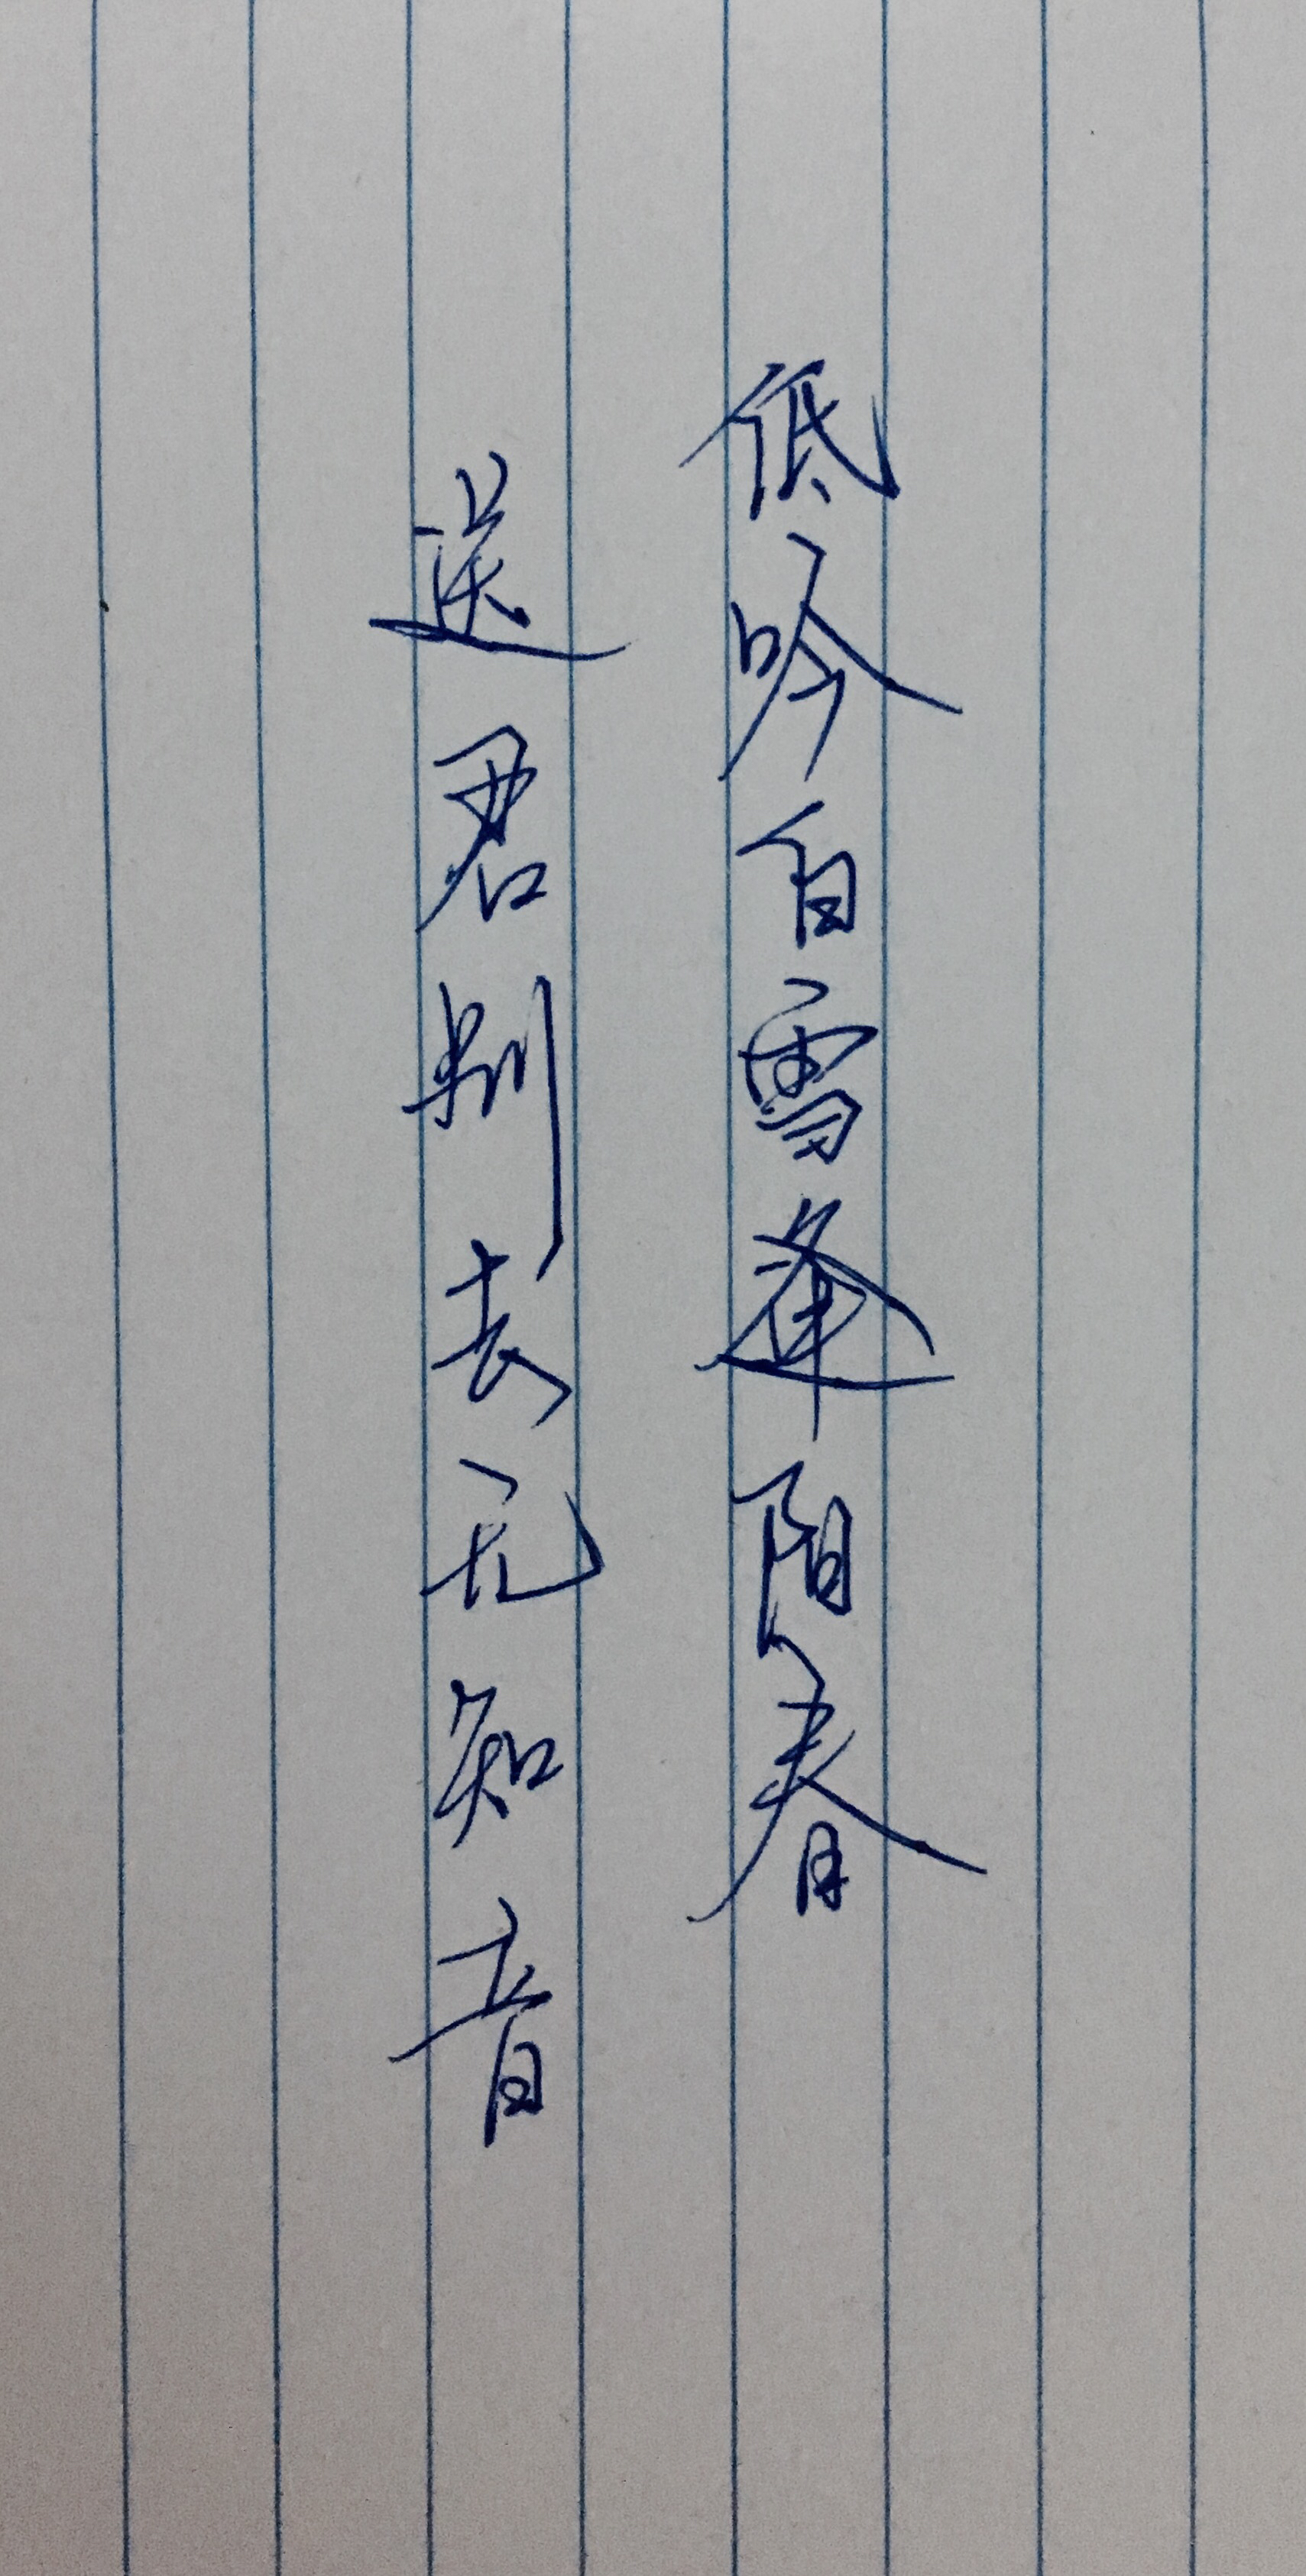 低吟白雪逢阳春
送君别去无知音